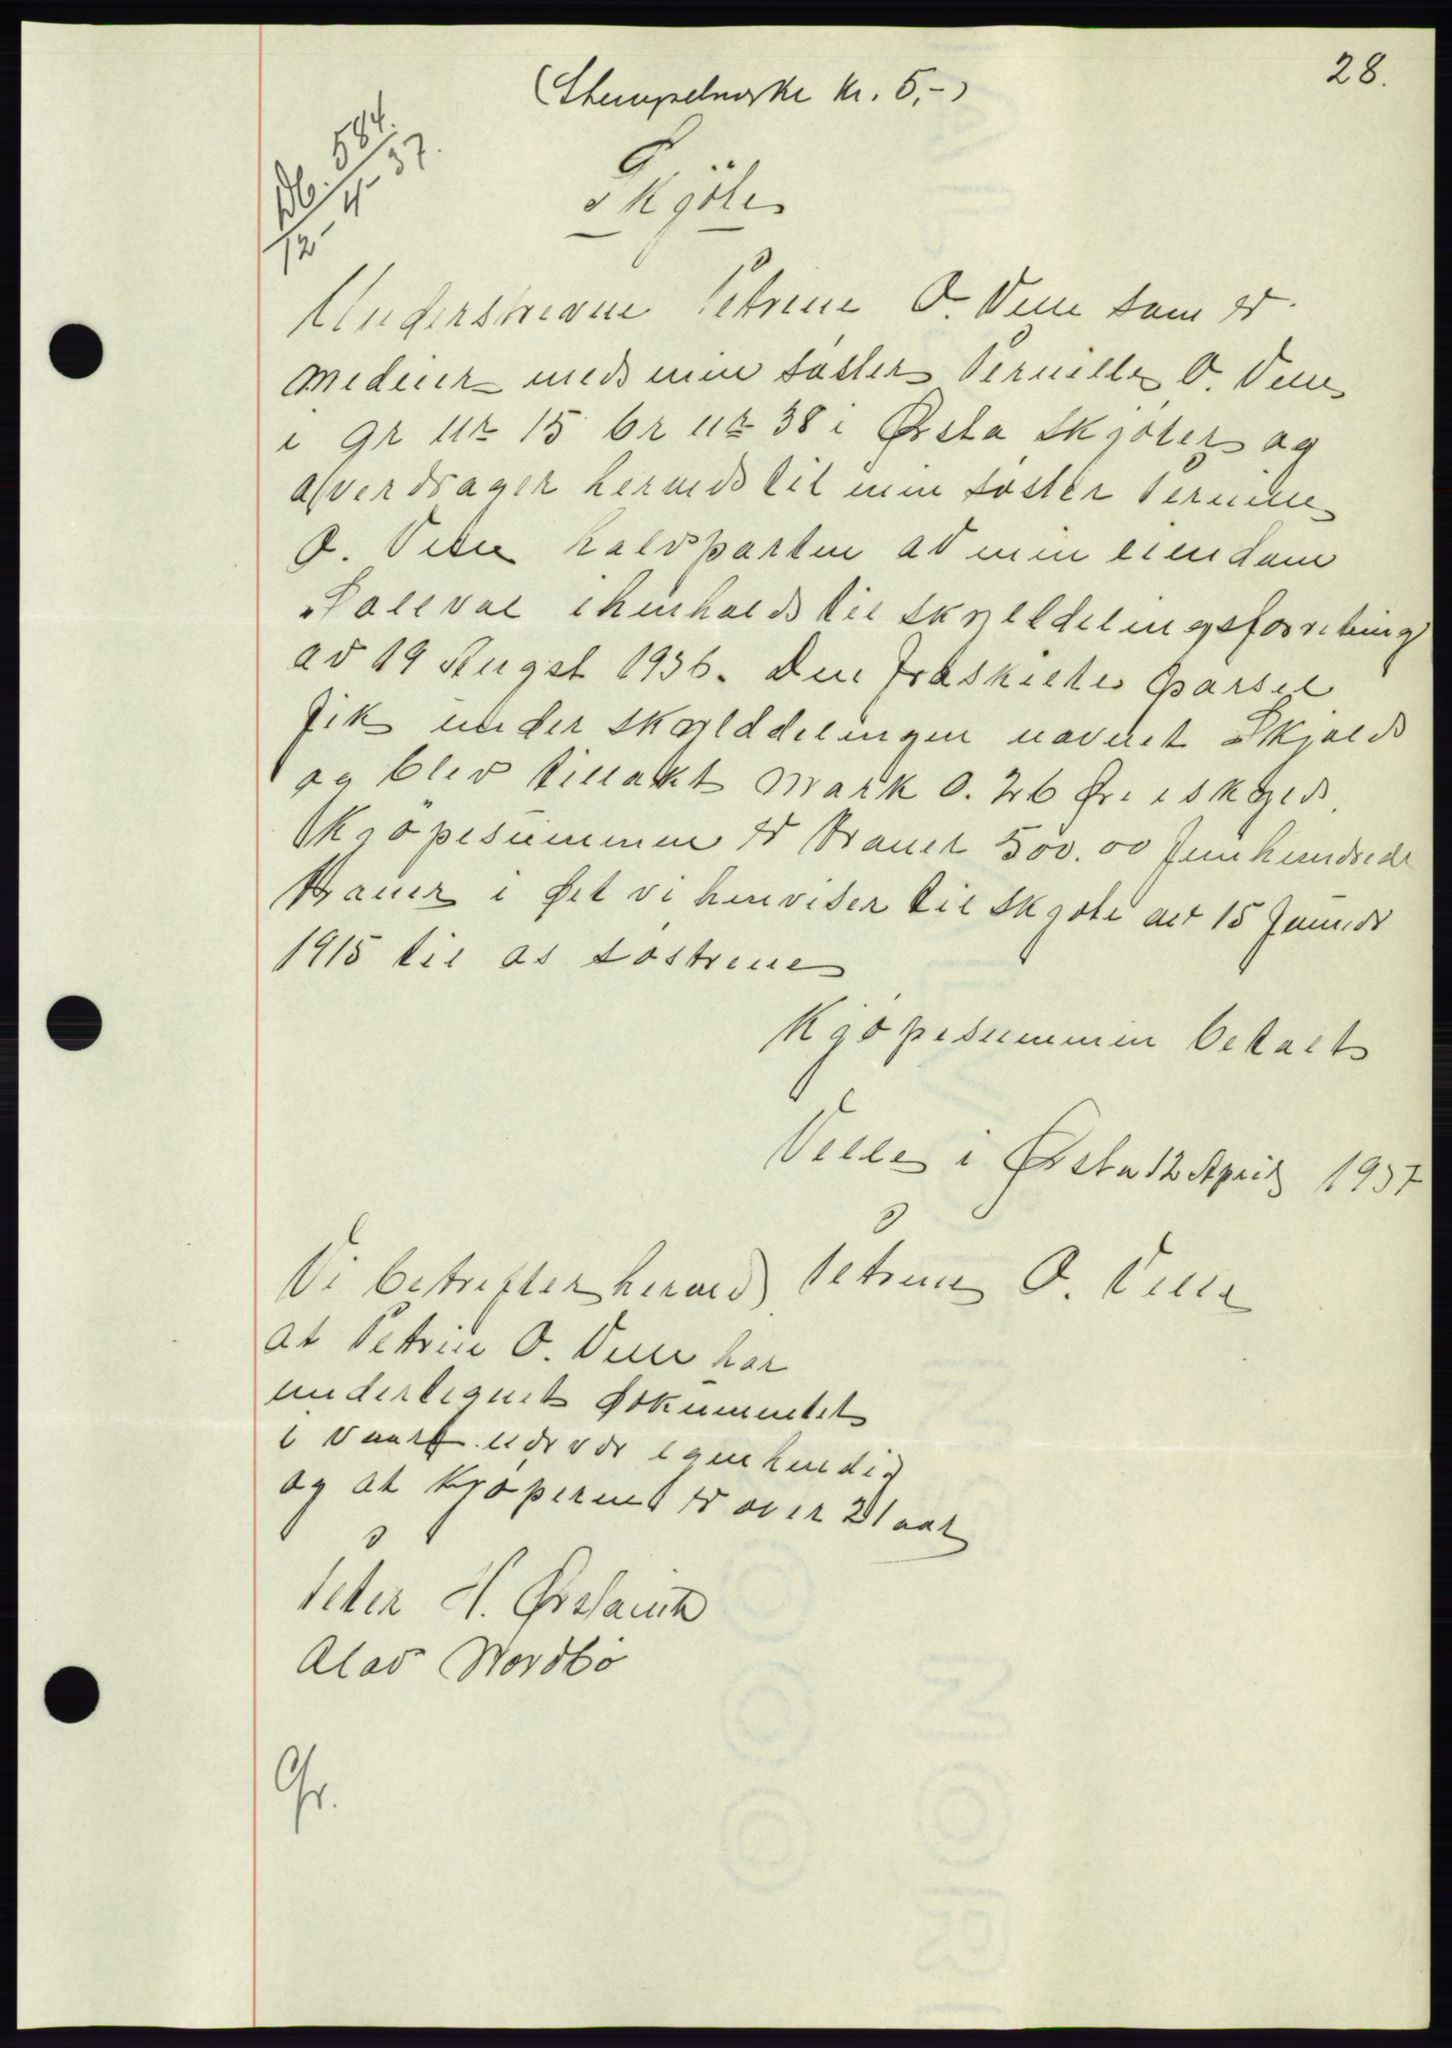 28.
(Stempelmerke kr. 5,-)
Db. 584.
12-4-37.
Skjöte
Underskrevne Petrine O. Velle som er
medeier med min søster Pernille O. Velle
i gr nr 15 br nr 38 i Ørsta skjøter og
overdrager herved til min søster Pernille
O. Velle halvparten av min eiendom
Solevol ihenhold til skylddelingsforretning
av 19 Augst 1936. Den fraskilte parsel
fik under skylddelingen navnet Skjold
og blev tillakt mark 0.26 Øre i skyld.
Kjöpesummen er Kroner 500.00 femhundrede
Kroner i det vi henviser til skjøte av 15 Januar
1915 til os søstrene
Kjöpesummen betalt
Velle i Ørsta 12 April 1937
Petrine O. Velle
Vi betrefter herved
at Petrine O. Velle har
undertegnet dokumentet
i vaart nærvær egenhendig
og at kjøperen er over 21 aar
Peter H. Ørstavik
Olav Nordbø
Gr.